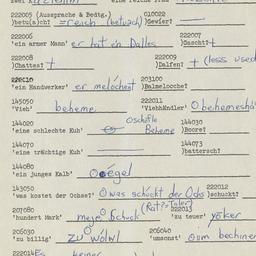 222005 (Aussprache & Bedtg.) 010022
)betu(a)ch! =reich (betuach) )Gevier?
222006 222007
'ein armer Mann' er hat en Dalles )Gascht? +
222008 222009
)Chattes? + )Dalfen? + (less used
222010 203100
'ein Handwerker' er meloche )Balmelocche?
145050 222011
'Vieh' beheme 'Viehhändler'
144020 144030
'eine schlechte Kuh' schifle Beheme )Boore?
144070 144073
'eine trächtige Kuh' )battersch?
144080
'ein junges Kalb' égel
143050 222012
'was kostet der Ochse?' was schuckt der Ochs )schuckt?
207080 (Rat?=Taler) 222013
'hundert Mark' meje Schuck 'zu teuer' yoker
206030 206040
'zu billig' zu wolwl 'umsonst' um bechinem
222014